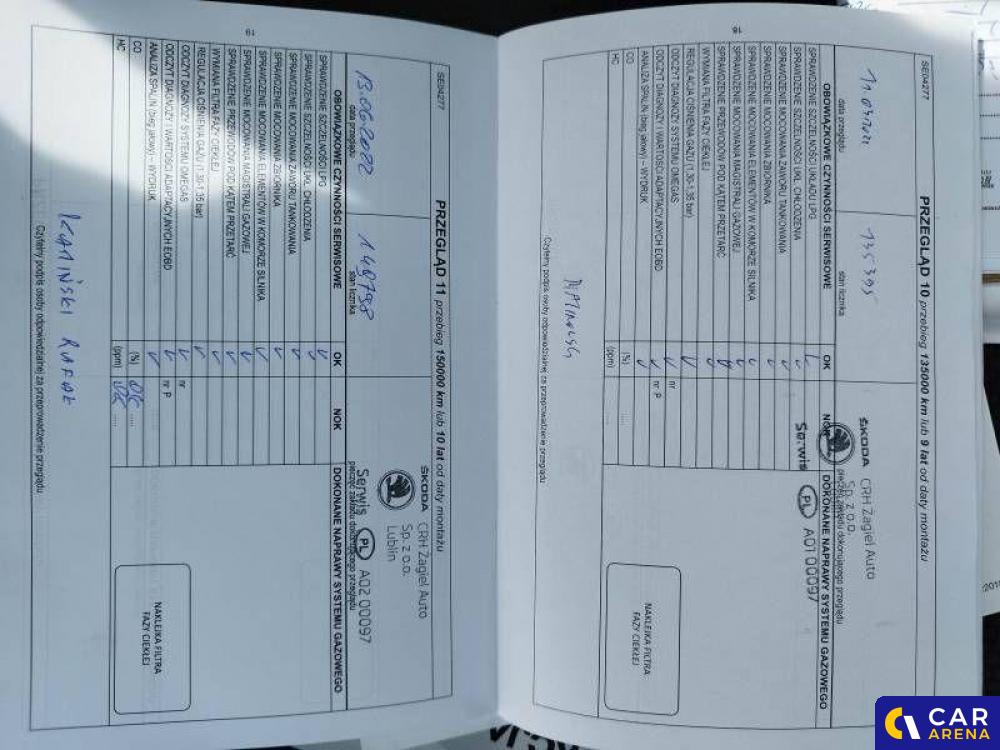 18
SE04277
PRZEGLĄD 10 przebieg 135000 km lub 9 lat od daty montażu
135395
data przeglądu
stan licznika
ŠKODA
CRH Żagiel Auto
Sp. z o.o.
pieczęć zakładu dokonującego przeglądu
Serwis PL A01 00097
OBOWIĄZKOWE CZYNNOŚCI SERWISOWE
OK
NOK
DOKONANE NAPRAWY SYSTEMU GAZOWEGO
SPRAWDZENIE SZCZELNOŚCI UKŁADU LPG
SPRAWDZENIE SZCZELNOŚCI UKŁ. CHŁODZENIA
SPRAWDZENIE MOCOWANIA ZAWORU TANKOWANIA
SPRAWDZENIE MOCOWANIA ZBIORNIKA
SPRAWDZENIE MOCOWANIA ELEMENTÓW W KOMORZE SILNIKA
SPRAWDZENIE MOCOWANIA MAGISTRALI GAZOWEJ
SPRAWDZENIE PRZEWODÓW POD KĄTEM PRZETARĆ
WYMIANA FILTRA FAZY CIEKŁEJ
REGULACJA CIŚNIENIA GAZU (1.30-1.35 bar)
ODCZYT DIAGNOZY SYSTEMU OMEGAS
nr
ODCZYT DIAGNOZY I WARTOŚCI ADAPTACYJNYCH EOBD
nr P
ANALIZA SPALIN (bieg jałowy) – WYDRUK
CO
(%)
HC
(ppm)
NAKLEJKA FILTRA
FAZY CIEKŁEJ
Czytelny podpis osoby odpowiedzialnej za przeprowadzenie przeglądu
19
SE04277
PRZEGLĄD 11 przebieg 150000 km lub 10 lat od daty montażu
13.06.2022
149798
data przeglądu
stan licznika
ŠKODA
CRH Żagiel Auto
Sp. z o.o.
Lublin
Serwis PL A02 00097
pieczęć zakładu dokonującego przeglądu
OBOWIĄZKOWE CZYNNOŚCI SERWISOWE
OK
NOK
DOKONANE NAPRAWY SYSTEMU GAZOWEGO
SPRAWDZENIE SZCZELNOŚCI LPG
SPRAWDZENIE SZCZELNOŚCI UKŁ. CHŁODZENIA
SPRAWDZENIE MOCOWANIA ZAWORU TANKOWANIA
SPRAWDZENIE MOCOWANIA ZBIORNIKA
SPRAWDZENIE MOCOWANIA ELEMENTÓW W KOMORZE SILNIKA
SPRAWDZENIE MOCOWANIA MAGISTRALI GAZOWEJ
SPRAWDZENIE PRZEWODÓW POD KĄTEM PRZETARĆ
WYMIANA FILTRA FAZY CIEKŁEJ
REGULACJA CIŚNIENIA GAZU (1.30-1.35 bar)
ODCZYT DIAGNOZY SYSTEMU OMEGAS
nr
ODCZYT DIAGNOZY I WARTOŚCI ADAPTACYJNYCH EOBD
nr P
ANALIZA SPALIN (bieg jałowy) – WYDRUK
CO
(%)
HC
(ppm)
NAKLEJKA FILTRA
FAZY CIEKŁEJ
KAMIŃSKI RAFAŁ
Czytelny podpis osoby odpowiedzialnej za przeprowadzenie przeglądu
CAR
ARENA